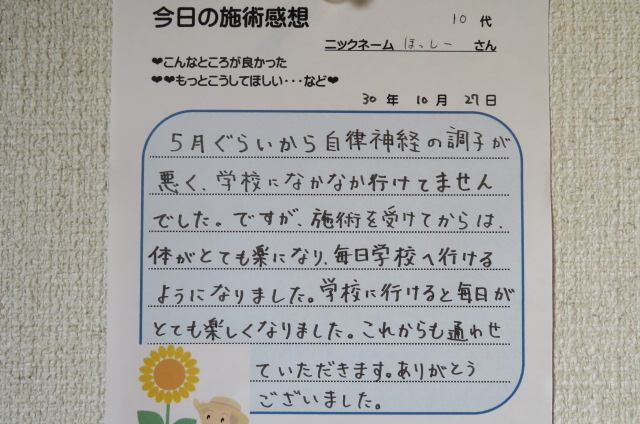 今日の施術感想
10 代
ニックネーム ほっしー さん
❤こんなところが良かった
❤❤もっとこうしてほしい・・・など❤
30 年 10 月 27 日
5月ぐらいから自律神経の調子が
悪く、学校になかなか行けてません
でした。ですが、施術を受けてからは、
体がとても楽になり、毎日学校へ行ける
ようになりました。学校に行けると毎日が
とても楽しくなりました。これからも通わせ
ていただきます。ありがとう
ございました。